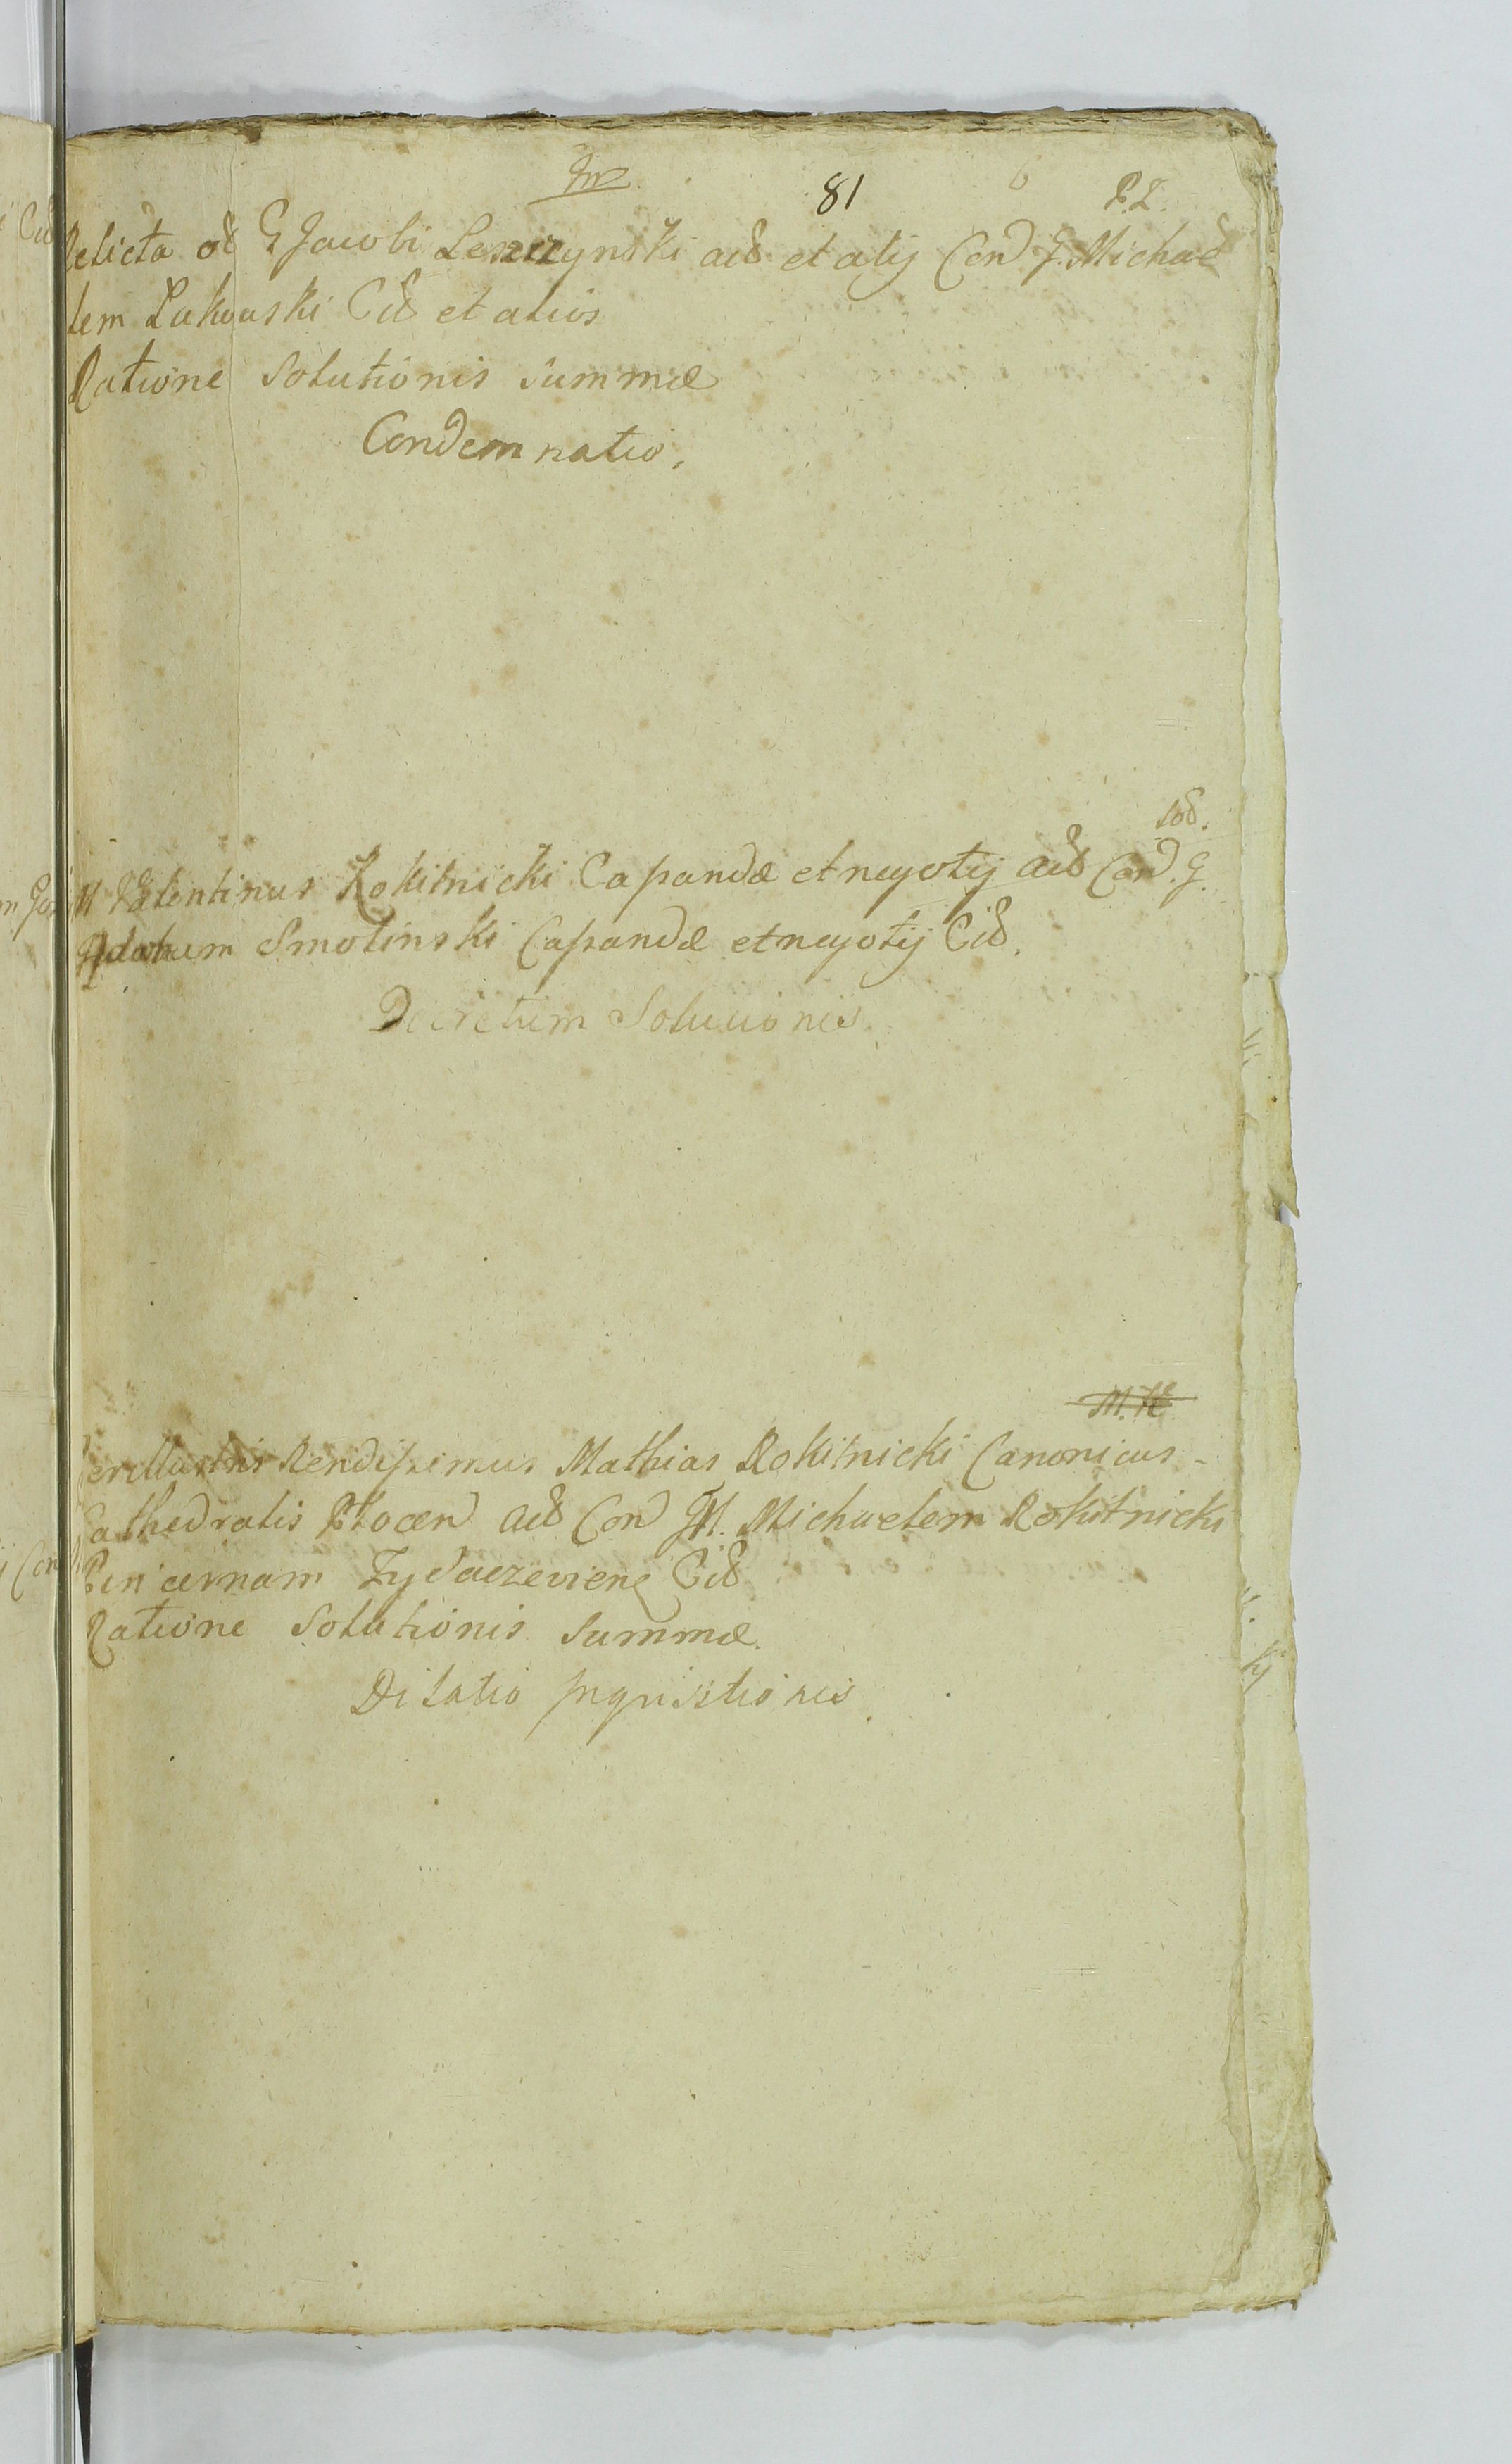 81
Relicta G Jacobi Leszczynski et alij Con G. Michae
lem Lukowski Cit et alios
Ratione Solutionis Summæ
Condemnatio.
M Valentinus Rokitnicki Capandæ et negotij act Con G.
Adamum Smolinski Capandæ et negotij Cit.
Decretum Solucionis
Perillustris Rendissimus Mathias Rokitnicki Canonicus
Cathedralis Plocen act Con M. Michaelem Rokitnicki
Pincernam Zydaczeviene Cit
Ratione Solutionis Summæ.
Dilatio Inquisitionis